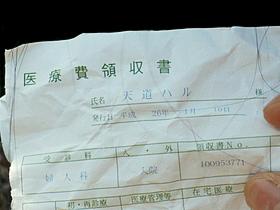 医療費領収書
氏名 天道ハル 様
発行日 平成 26年 1月 10日
受診科 入・外 領収書No.
婦人科 入院 100953771
初・再診療 医療管理等 在宅医療